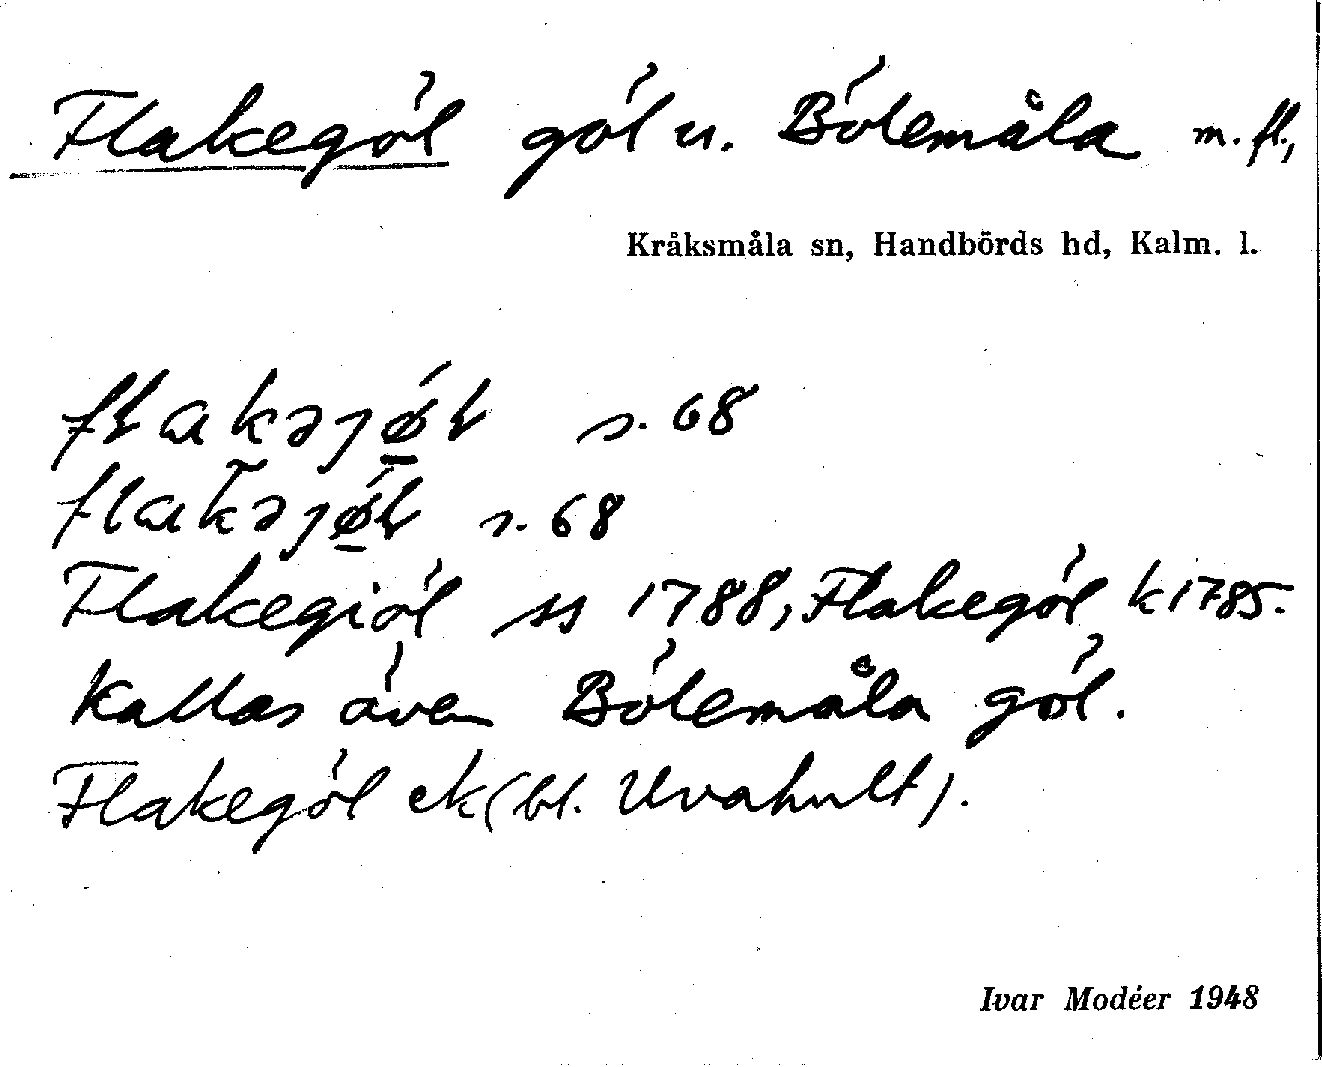 Flakegöl göl u. Bölemåla m.fl.,
Kråksmåla sn, Handbörds hd, Kalm. l.
flakəjǿ̱l s. 68
flak̄əjǿ̱l s. 68
Flakegiöl ss 1788, Flakegöl k 1785.
Kallas även Bölemåla göl.
Flakegöl ek (bl. Uvahult).
Ivar Modéer 1948